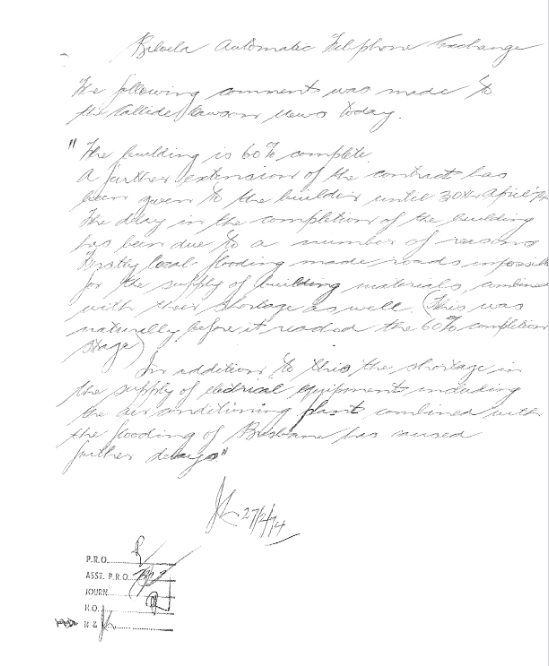 Biloela Automatic Telphone Exchange
The following comment was made to
the Callide Dawson News today.
"The building is 60% complete.
A further extension of the contract has
been given to the builder until 30th April
The delay in the completion of the building
has been due to a number of reasons
Firstly local flooding made roads impossib
for the supply of building materials, combined
with their shortage as well. (This was
naturally before it reached the 60% completion
stage)
In addition to this the shortage in
the supply of electrical equipment including
the air conditioning plant combined with
the flooding of Brisbane has caused
further delays"
27/2/74
P.R.O.
ASST. P.R.O.
JOURN.
H.O.